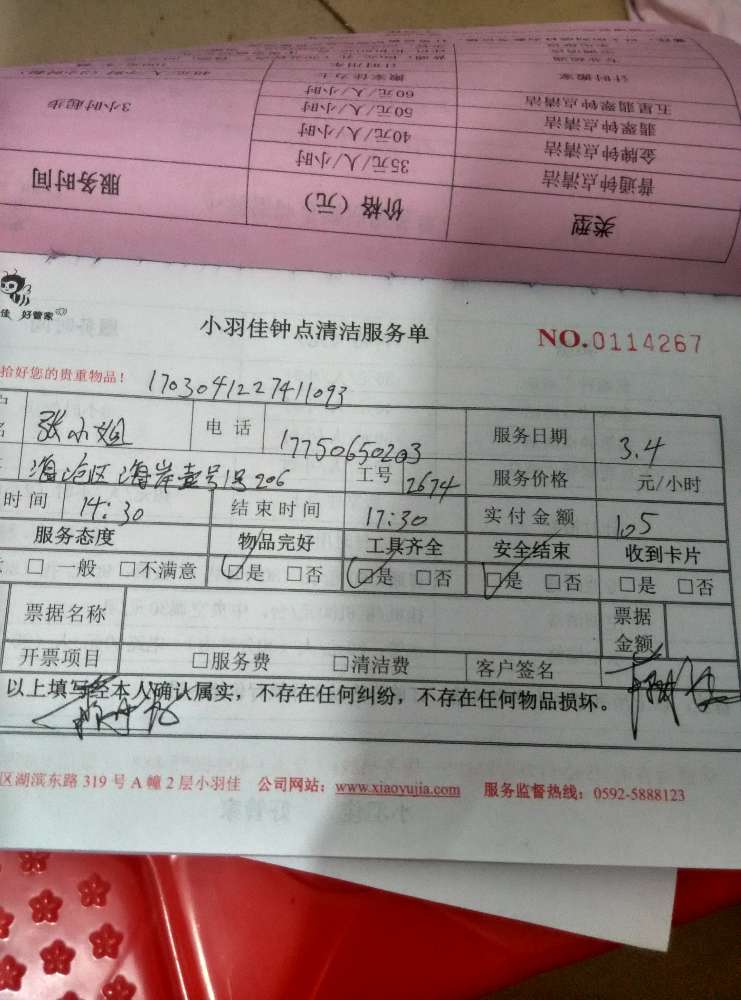 类型 价格（元） 服务时间
普通钟点清洁 35元/人/小时 3小时起步
金牌钟点清洁 40元/人/小时
翡翠钟点清洁 50元/人/小时
五星翡翠钟点清洁 60元/人/小时
计时搬家 搬家佳力士
佳 好管家
小羽佳钟点清洁服务单 NO.0114267
拾好您的贵重物品！ 1703041227411093
张小姐 电话 17750650203 服务日期 3.4
海沧区海岸壹号1号206 工号 2674 服务价格 元/小时
时间 14:30 结束时间 17:30 实付金额 105
服务态度 物品完好 工具齐全 安全结束 收到卡片
□一般 □不满意 □是 □否 □是 □否 □是 □否 □是 □否
票据名称 票据金额
开票项目 □服务费 □清洁费 客户签名
以上填写经本人确认属实，不存在任何纠纷，不存在任何物品损坏。
区湖滨东路319号A幢2层小羽佳 公司网站：www.xiaoyujia.com 服务监督热线：0592-5888123